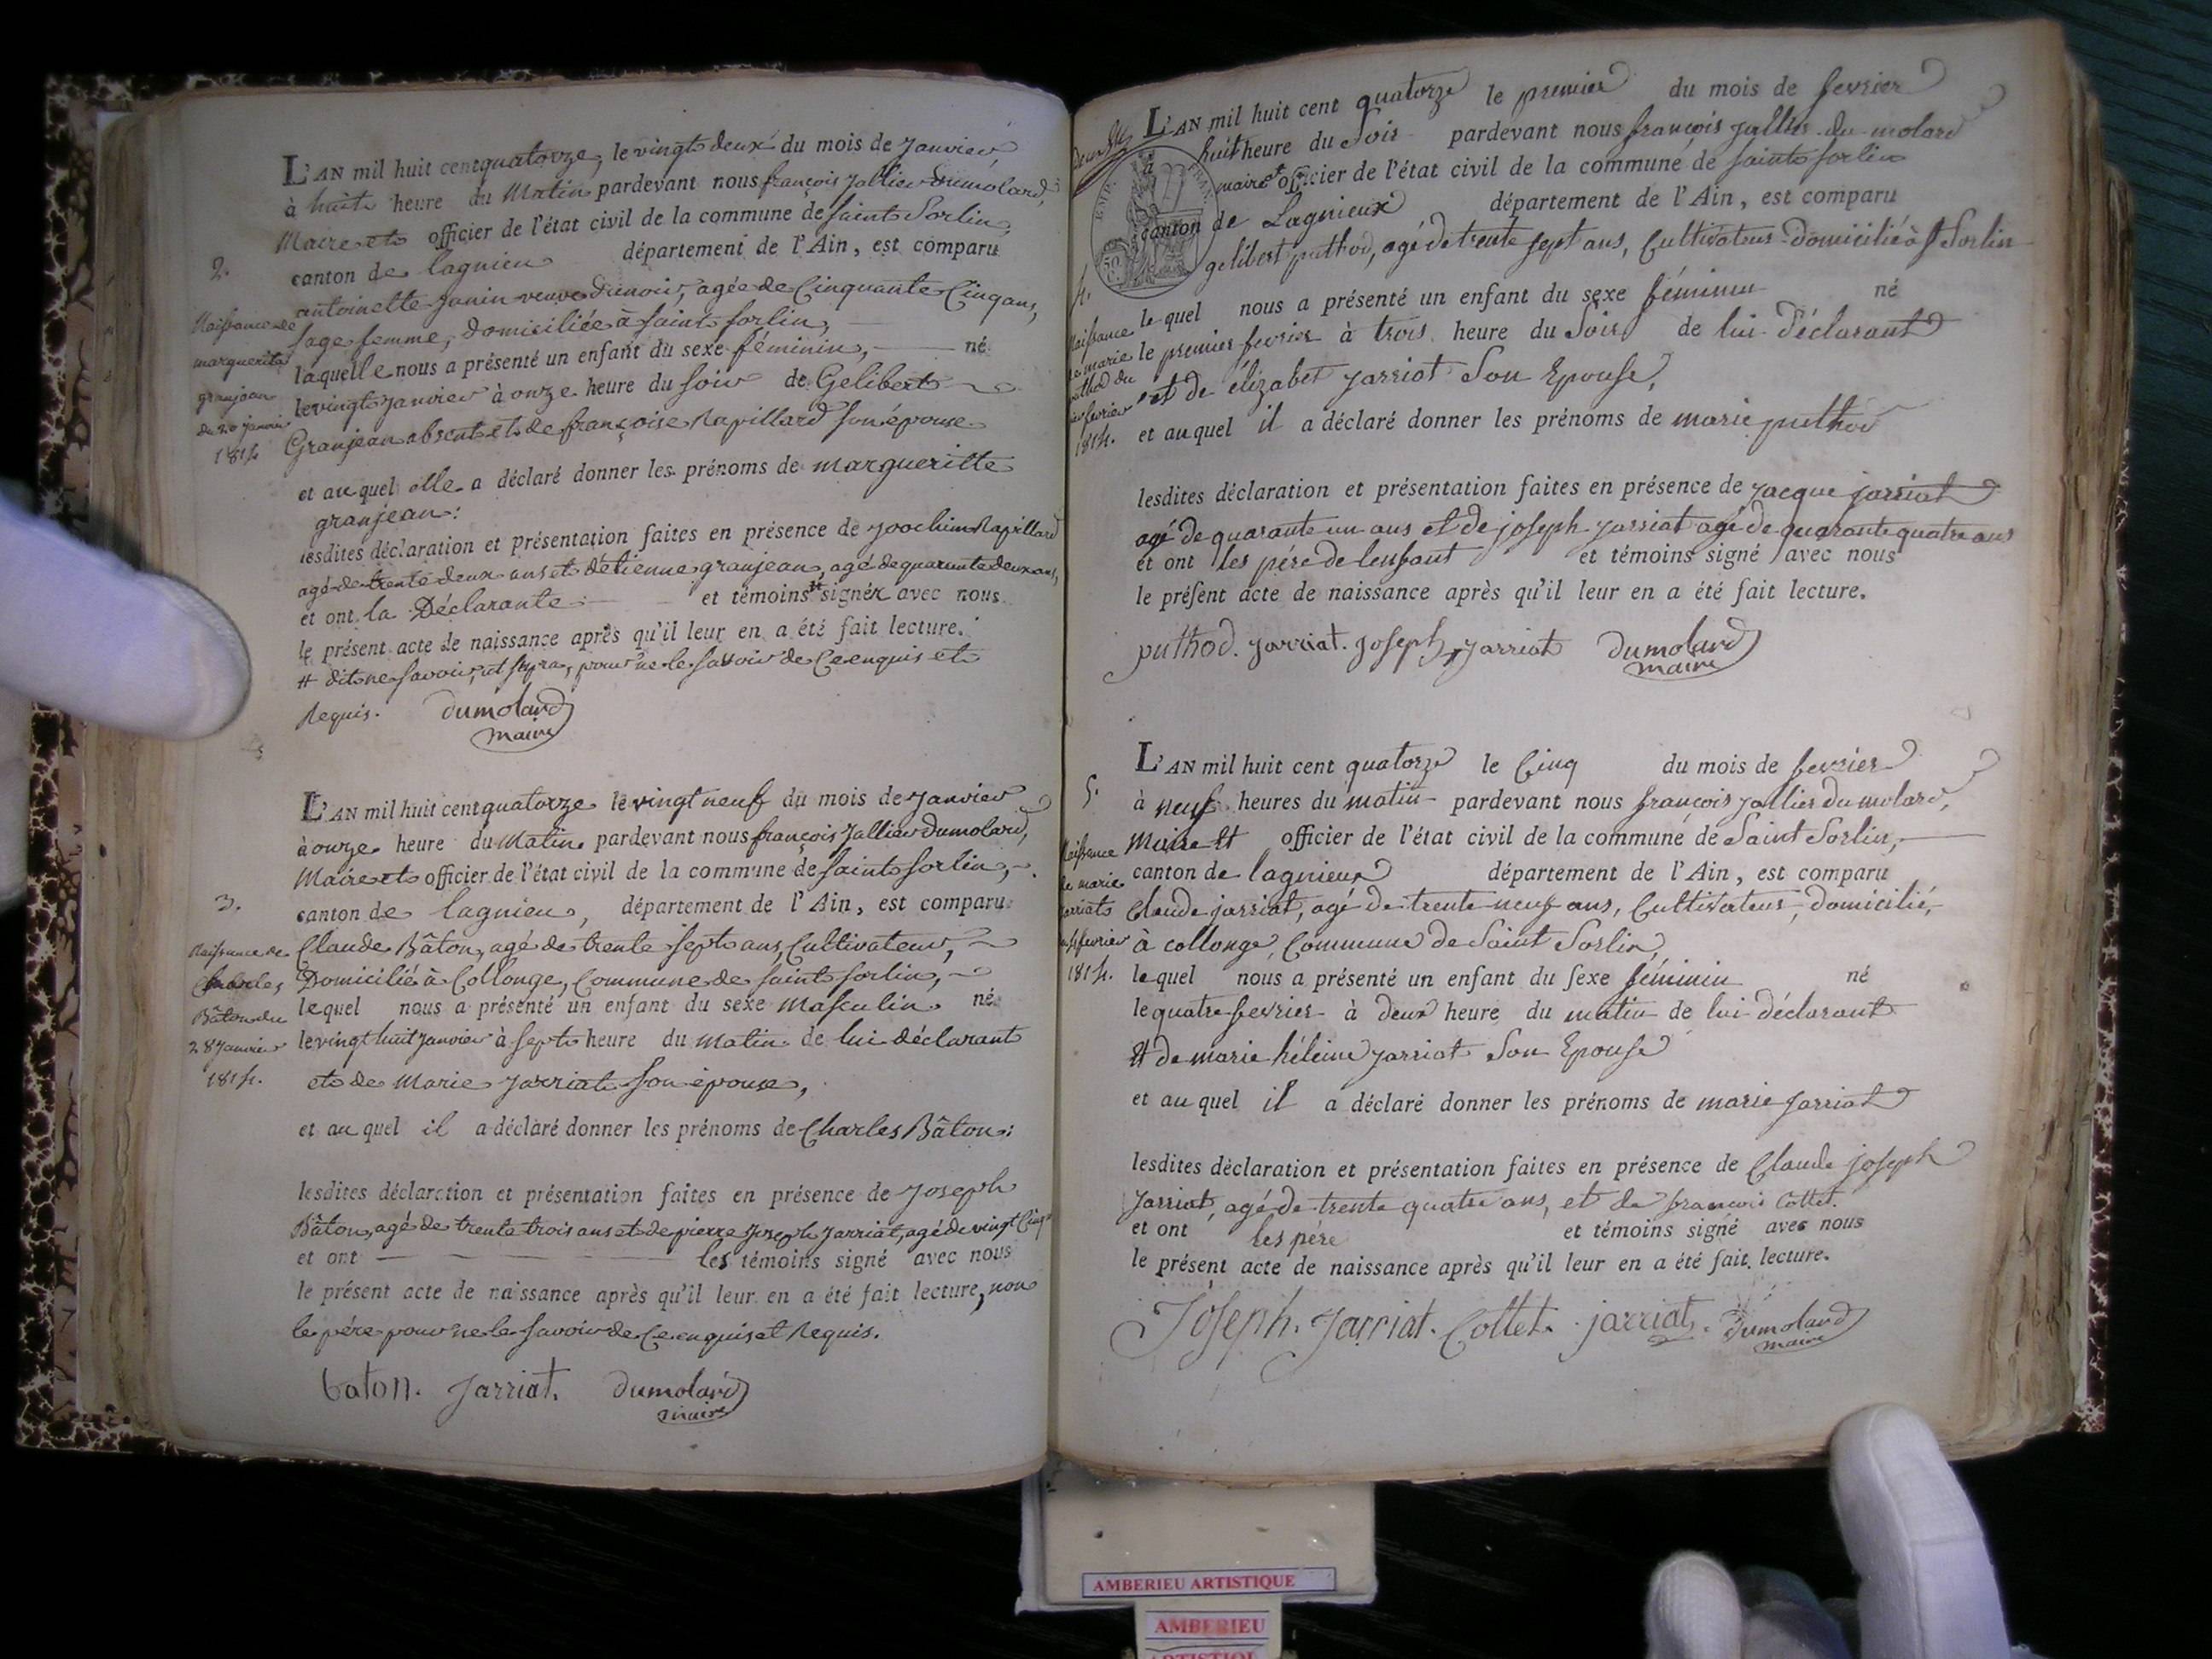 L'AN mil huit cent quatorze, le vingt deux du mois de janvier
à huit heure du Matin pardevant nous françois jallier Dumolard,
Maire et officier de l'état civil de la commune de saint Sorlin,
2. canton de lagnieu département de l'Ain, est comparu
antoinette janin veuve dunoir, agée de Cinquante Cinq ans,
sage femme, domiciliée à saint sorlin,
laquelle nous a présenté un enfant du sexe féminin, né
le vingt janvier à onze heure du soir de Gelibert
Granjean absent et de françoise Rapillard son épouse
et au quel elle a déclaré donner les prénoms de margueritte
granjean:
lesdites déclaration et présentation faites en présence de joachim Rapillard
agé de trente deux ans et d'étienne granjean, agé de quarante deux ans,
et ont la Déclarante et témoins # signér avec nous
le présent acte de naissance après qu'il leur en a été fait lecture.
# dit ne savoir, ut supra, pour ne le savoir de Ce enquis et
Requis. dumolard
maire
Naissance de
marguerite
granjean
du 20 janvier
1814
L'AN mil huit cent quatorze le vingt neuf du mois de janvier
à onze heure du Matin pardevant nous françois jallier dumolard,
Maire et officier de l'état civil de la commune de saint sorlin,
3. canton de lagnieu, département de l'Ain, est comparu
Claude Bâton, agé de trente sept ans, Cultivateur,
Domicilié à Collonge, Commune de saint sorlin,
lequel nous a présenté un enfant du sexe masculin né
le vingt huit janvier à sept heure du matin de lui déclarant
et de Marie jarriat son épouse,
et au quel il a déclaré donner les prénoms de Charles Bâton:
lesdites déclaration et présentation faites en présence de joseph
Bâton, agé de trente trois ans et de pierre joseph jarriat, agé de vingt Cinq
et ont les témoins signé avec nous
le présent acte de naissance après qu'il leur en a été fait lecture, non
le père pour ne le savoir de Ce enquis et Requis.
baton. jarriat. dumolard
maire
Naissance de
Charles
Bâton du
28 janvier
1814.
L'AN mil huit cent quatorze le premier du mois de fevrier
à huit heure du Soir pardevant nous françois jallier du molard
maire et officier de l'état civil de la commune de saint sorlin
canton de Lagnieux département de l'Ain, est comparu
gelibert puthod, agé de trente sept ans, Cultivateur domicilié à St Sorlin
lequel nous a présenté un enfant du sexe féminin né
le premier fevrier à trois heure du Soir de lui déclarant
et de élizabet jarriat Son Epouse,
et au quel il a déclaré donner les prénoms de marie puthod
lesdites déclaration et présentation faites en présence de jacque jarriat
agé de quarante un ans et de joseph jarriat agé de quarante quatre ans
et ont les père de lenfant et témoins signé avec nous
le présent acte de naissance après qu'il leur en a été fait lecture.
puthod. jarriat. joseph jarriat dumolard
maire
4.
Naissance
de marie
puthod du
fevrier
1814.
L'AN mil huit cent quatorze le Cinq du mois de fevrier
5. à neuf heures du matin pardevant nous françois jallier dumolard,
Maire et officier de l'état civil de la commune de Saint Sorlin,
canton de lagnieux département de l'Ain, est comparu
Claude jarriat, agé de trente neuf ans, Cultivateur, domicilié,
à collonge, Commune de Saint Sorlin,
lequel nous a présenté un enfant du sexe féminin né
le quatre fevrier à deux heure du matin de lui déclarant
et de marie héleine jarriat Son Epouse
et au quel il a déclaré donner les prénoms de marie jarriat
lesdites déclaration et présentation faites en présence de Claude joseph
jarriat, agé de trente quatre ans, et de françois Cottet.
et ont les père et témoins signé avec nous
le présent acte de naissance après qu'il leur en a été fait lecture.
Joseph. Jarriat. Cottet. jarriat. dumolard
maire
Naissance
de marie
jarriat
fevrier
1814.
AMBERIEU ARTISTIQUE
AMBERIEU
ARTISTIQUE